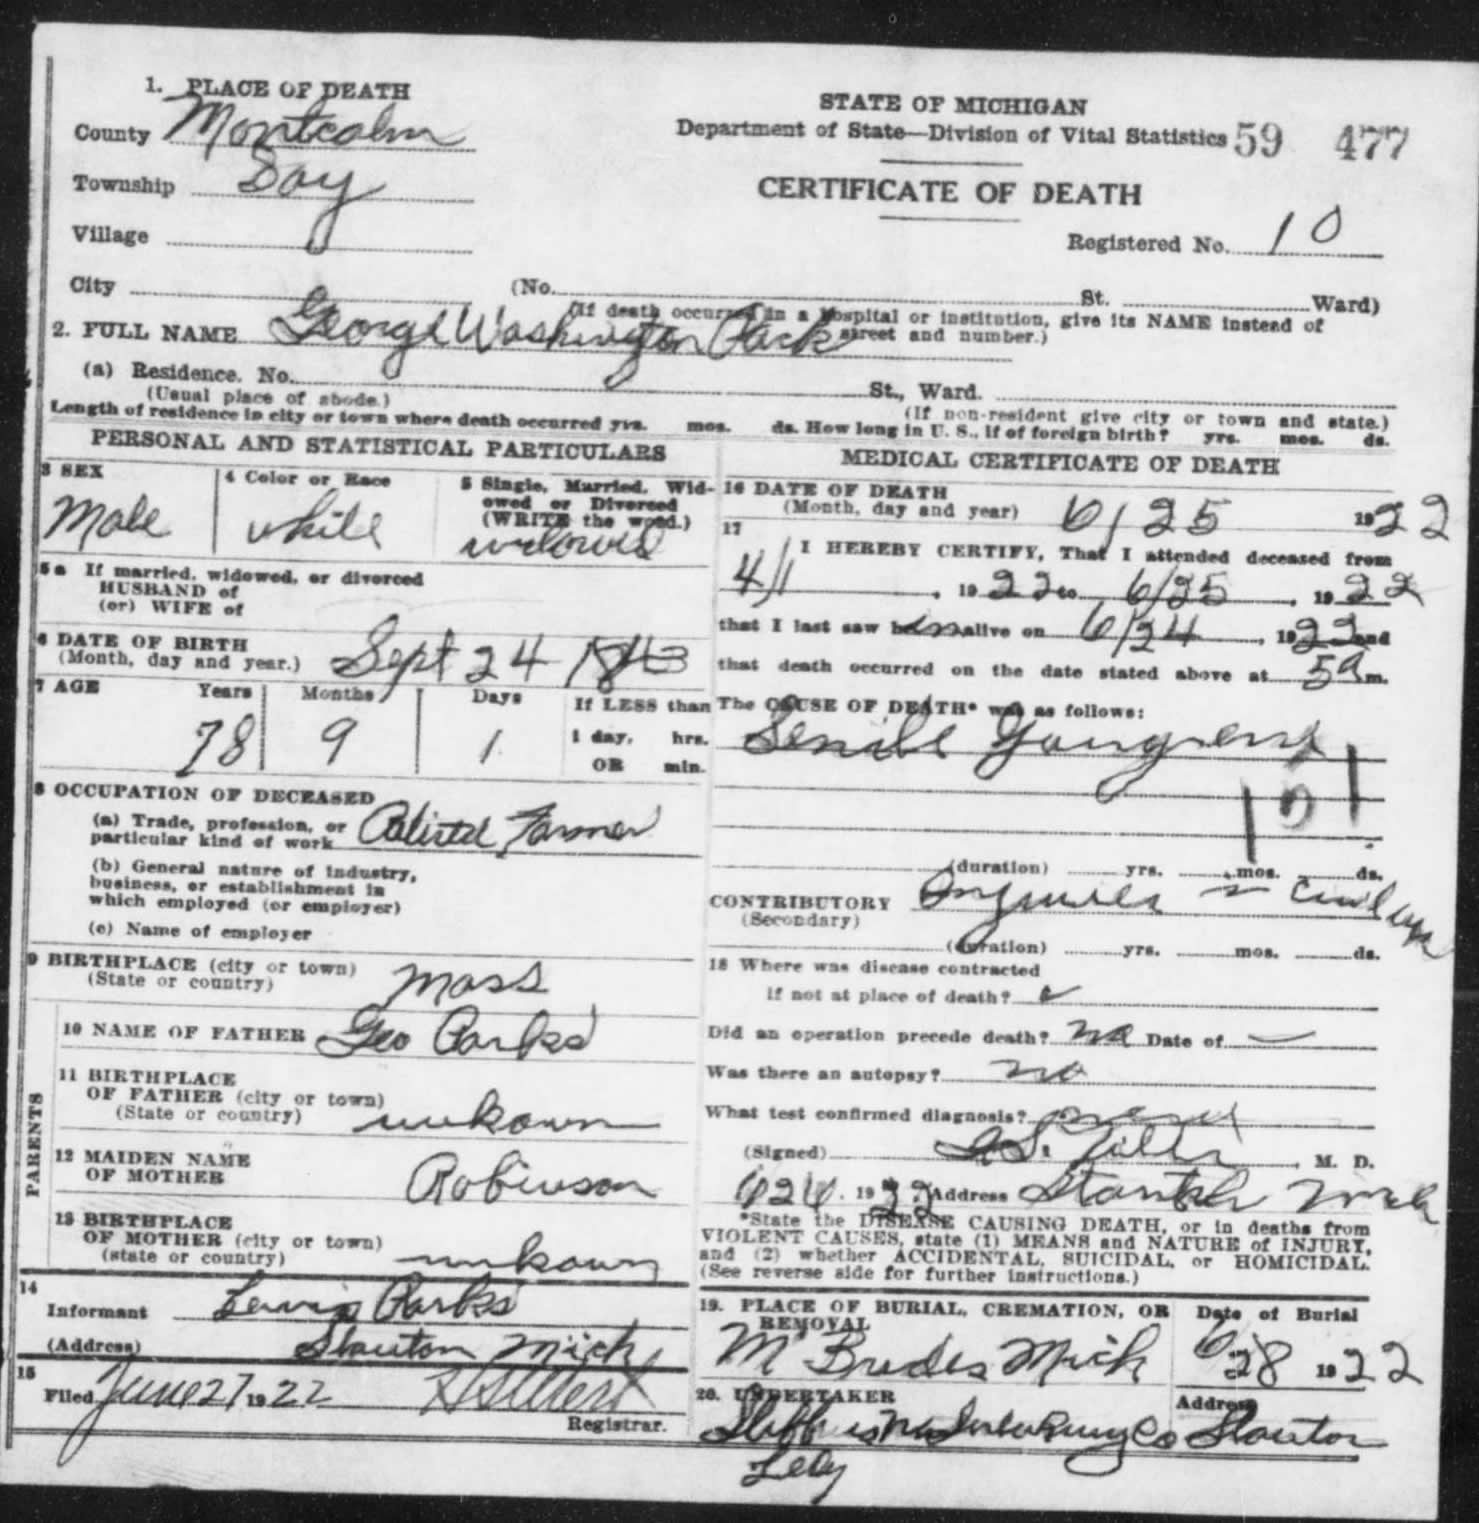 1. PLACE OF DEATH
County Montcalm
Township Day
Village
City (No. St. Ward)
(If death occurred in a hospital or institution, give its NAME instead of street and number.)
STATE OF MICHIGAN
Department of State—Division of Vital Statistics 59 477
CERTIFICATE OF DEATH
Registered No. 10
2. FULL NAME George Washington Park
(a) Residence. No. St., Ward.
(Usual place of abode.) (If non-resident give city or town and state.)
Length of residence in city or town where death occurred yrs. mos. ds. How long in U. S., if of foreign birth? yrs. mos. ds.
PERSONAL AND STATISTICAL PARTICULARS
3 SEX
Male
4 Color or Race
White
5 Single, Married, Widowed or Divorced
(WRITE the word.)
widowed
5a If married, widowed, or divorced
HUSBAND of
(or) WIFE of
6 DATE OF BIRTH
(Month, day and year.) Sept 24 1843
7 AGE Years Months Days
78 9 1
If LESS than
1 day, hrs.
OR min.
8 OCCUPATION OF DECEASED
(a) Trade, profession, or
particular kind of work Retired Farmer
(b) General nature of industry,
business, or establishment in
which employed (or employer)
(c) Name of employer
9 BIRTHPLACE (city or town)
(State or country) Mass
PARENTS
10 NAME OF FATHER Geo Parks
11 BIRTHPLACE
OF FATHER (city or town)
(State or country) unkown
12 MAIDEN NAME
OF MOTHER Robinson
13 BIRTHPLACE
OF MOTHER (city or town)
(state or country) unkown
14
Informant Parks
(Address) Stanton Mich
15
Filed June 27 1922
Registrar.
MEDICAL CERTIFICATE OF DEATH
16 DATE OF DEATH
(Month, day and year) 6/25 1922
17
I HEREBY CERTIFY, That I attended deceased from
4/1, 1922 to 6/25, 1922
that I last saw him alive on 6/24, 1922 and
that death occurred on the date stated above at 5 a m.
The CAUSE OF DEATH* was as follows:
Senile Gangrene
151
(duration) yrs. mos. ds.
CONTRIBUTORY
(Secondary)
(duration) yrs. mos. ds.
18 Where was disease contracted
if not at place of death?
Did an operation precede death? no Date of —
Was there an autopsy? no
What test confirmed diagnosis?
(Signed) , M. D.
1922 Address Stanton Mich
*State the DISEASE CAUSING DEATH, or in deaths from
VIOLENT CAUSES, state (1) MEANS and NATURE of INJURY,
and (2) whether ACCIDENTAL, SUICIDAL, or HOMICIDAL.
(See reverse side for further instructions.)
19. PLACE OF BURIAL, CREMATION, OR
REMOVAL
McBrides Mich
Date of Burial
6/28 1922
20. UNDERTAKER
Co
Address
Stanton